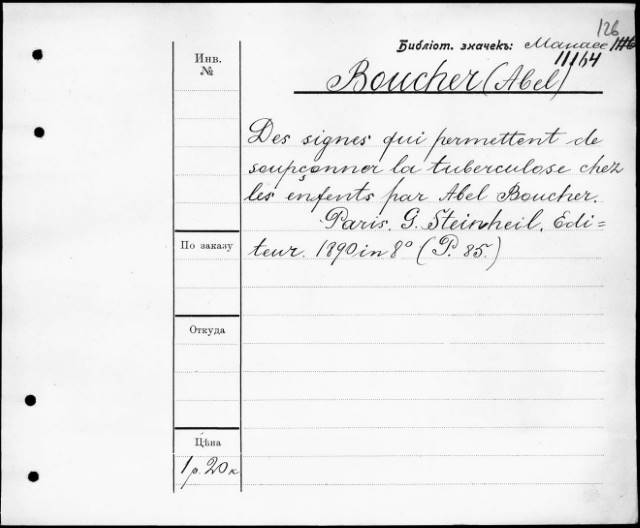 126
Библіот. значекъ: Манасе
11164
Boucher (Abel)
Инв.
№
Des signes qui permettent de
soupçonner la tuberculose chez
les enfents par Abel Boucher.
Paris. G. Steinheil. Edi=
teur. 1890 in 8° (P. 85.)
По заказу
Откуда
Цѣна
1 р. 20 к